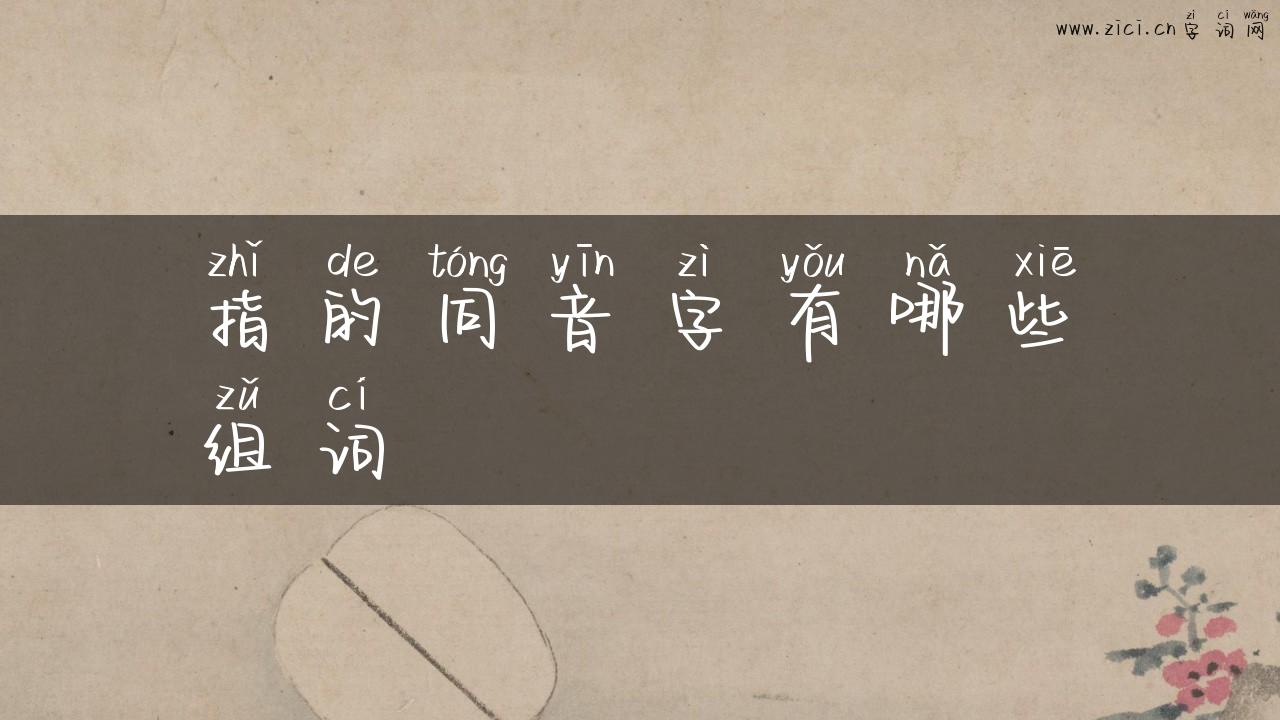 zì cí wǎng
www.zici.cn 字词网
zhǐ de tóng yīn zì yǒu nǎ xiē
指的同音字有哪些
zǔ cí
组词